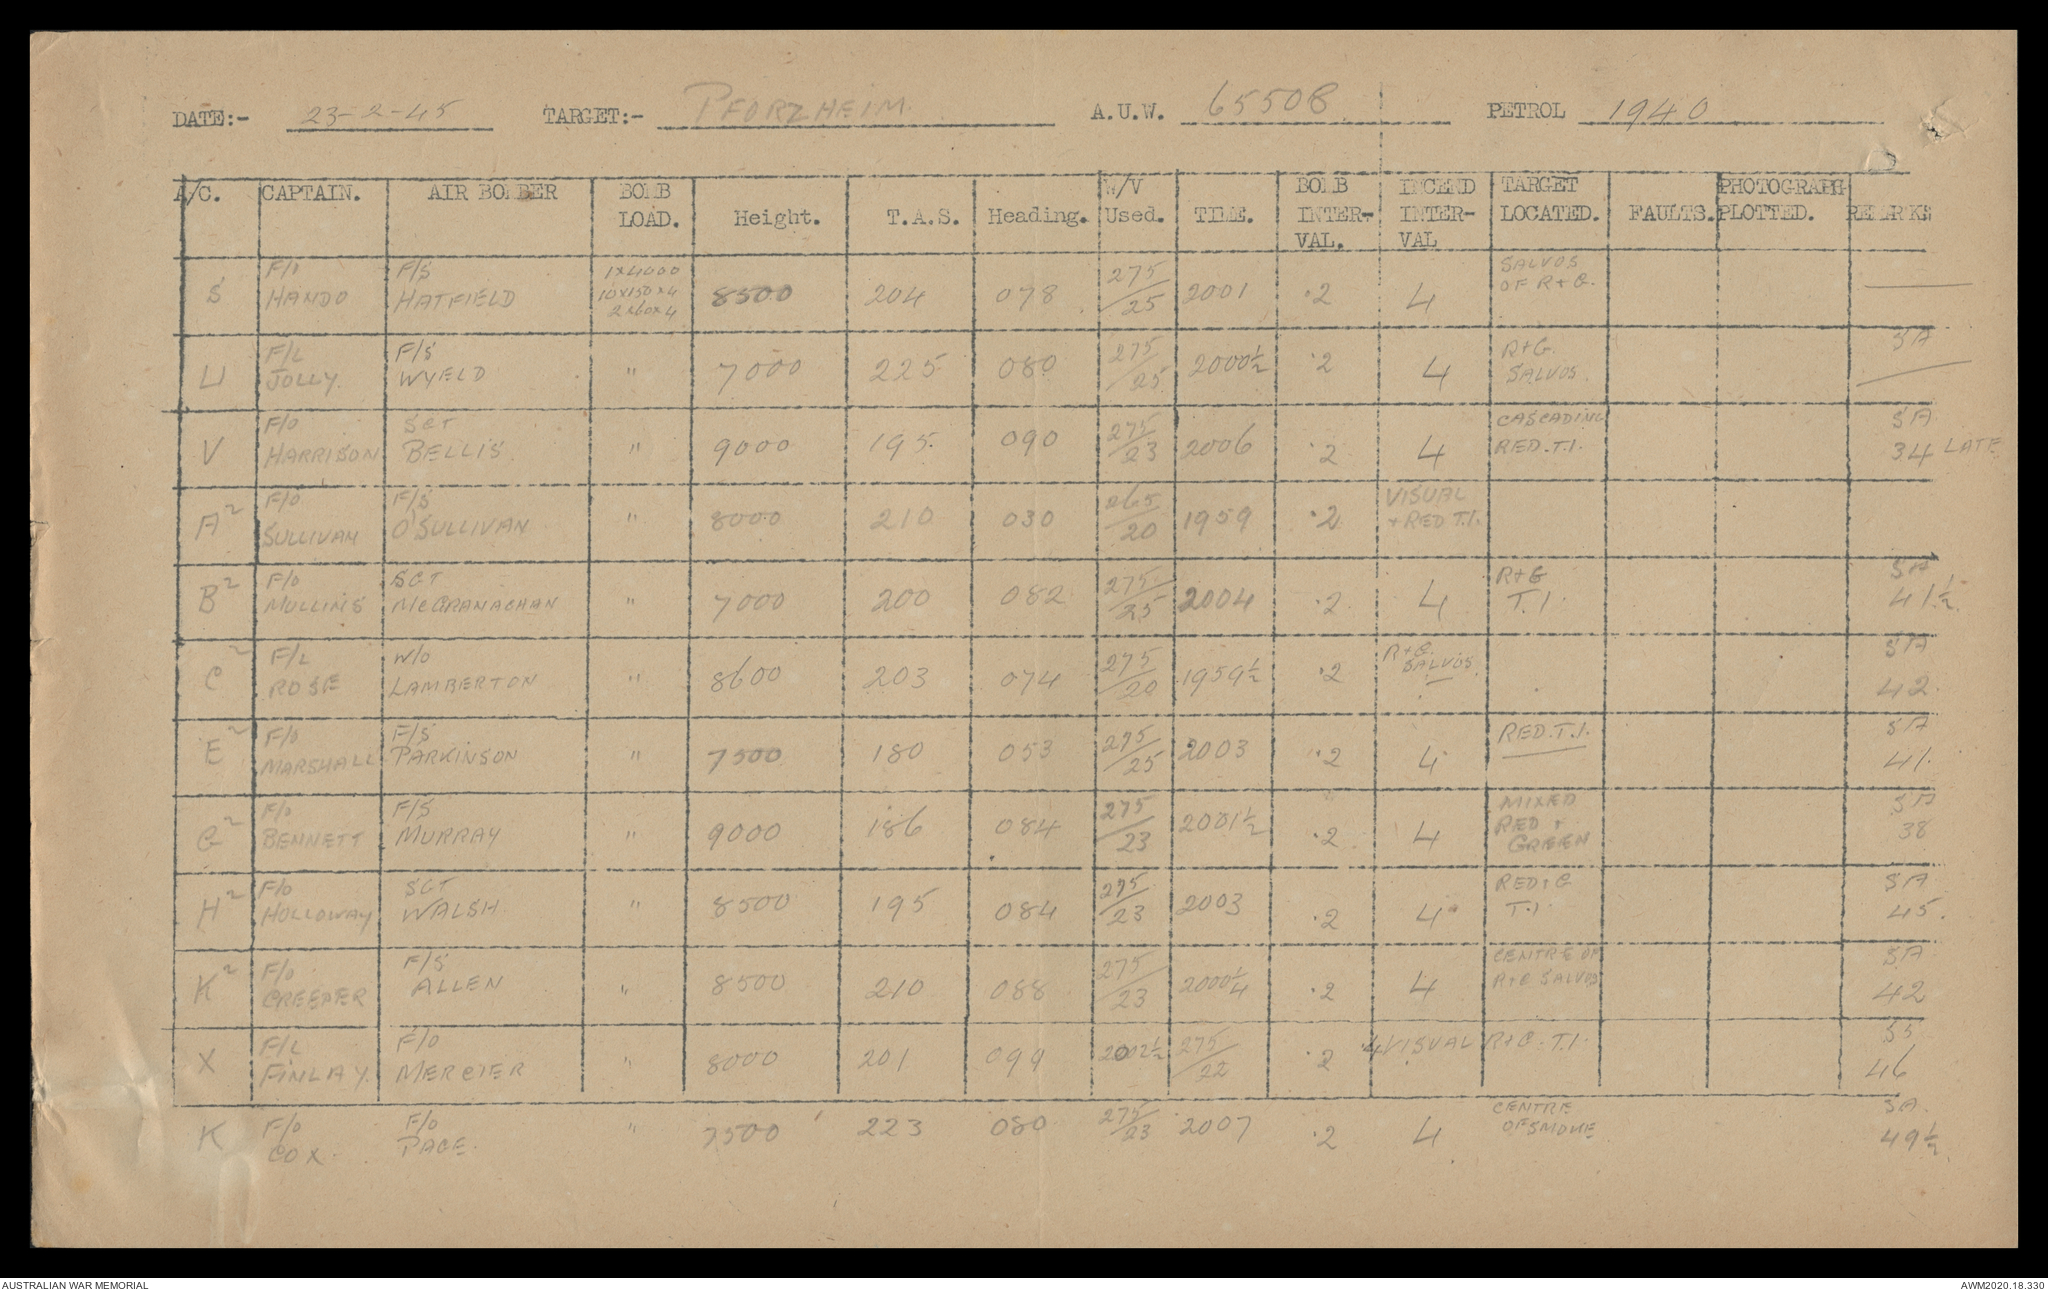 DATE:- 23-2-45 TARGET:- PFORZHEIM. A.U.W. 65508 PETROL 1940
A/C. CAPTAIN. AIR BOMBER BOMB LOAD. Height. T.A.S. Heading. W/V Used. TIME. BOMB INTER-VAL. INCEND INTER-VAL TARGET LOCATED. FAULTS. PHOTOGRAPH PLOTTED. REMARKS
S F/O HANDO F/S HATFIELD 1x4000 10x150x4 2x60x4 8500 204 078 275/25 2001 .2 4 SALVOS OF R+G.
U F/L JOLLY. F/S WYELD " 7000 225 080 275/25 2000½ .2 4 R+G. SALVOS. SA
V F/O HARRISON SGT BELLIS. " 9000 195 090 275/23 2006 .2 4 CASCADING RED.T.I. SA 34 LATE
A2 F/O SULLIVAN F/S O'SULLIVAN " 8000 210 030 265/20 1959 .2 VISUAL + RED T.I.
B2 F/O MULLINS SGT McGRANACHAN " 7000 200 082 275/25 2004 .2 4 R+G T.I. SA 41½
C2 F/L ROSE W/O LAMBERTON " 8600 203 074 275/20 1959½ .2 R+G. SALVOS. SA 42.
E2 F/O MARSHALL F/S PARKINSON " 7500 180 053 275/25 2003 .2 4 RED.T.I. SA 41.
G2 F/O BENNETT F/S MURRAY " 9000 186 084 275/23 2001½ .2 4 MIXED RED + GREEN SA 38
H2 F/O HOLLOWAY SGT WALSH " 8500 195 084 275/23 2003 .2 4 RED+G T.I. SA 45.
K2 F/O CREEPER F/S ALLEN " 8500 210 088 275/23 2000¼ .2 4 CENTRE OF R+G SALVOS SA 42
X F/L FINLAY. F/O MERCIER " 8000 201 099 2002½ 275/22 .2 4 VISUAL R+G. T.I. SS 46
K F/O COX. F/O PAGE. " 7500 223 080 275/23 2007 .2 4 CENTRE OF SMOKE SA. 49½
AUSTRALIAN WAR MEMORIAL AWM2020.18.330